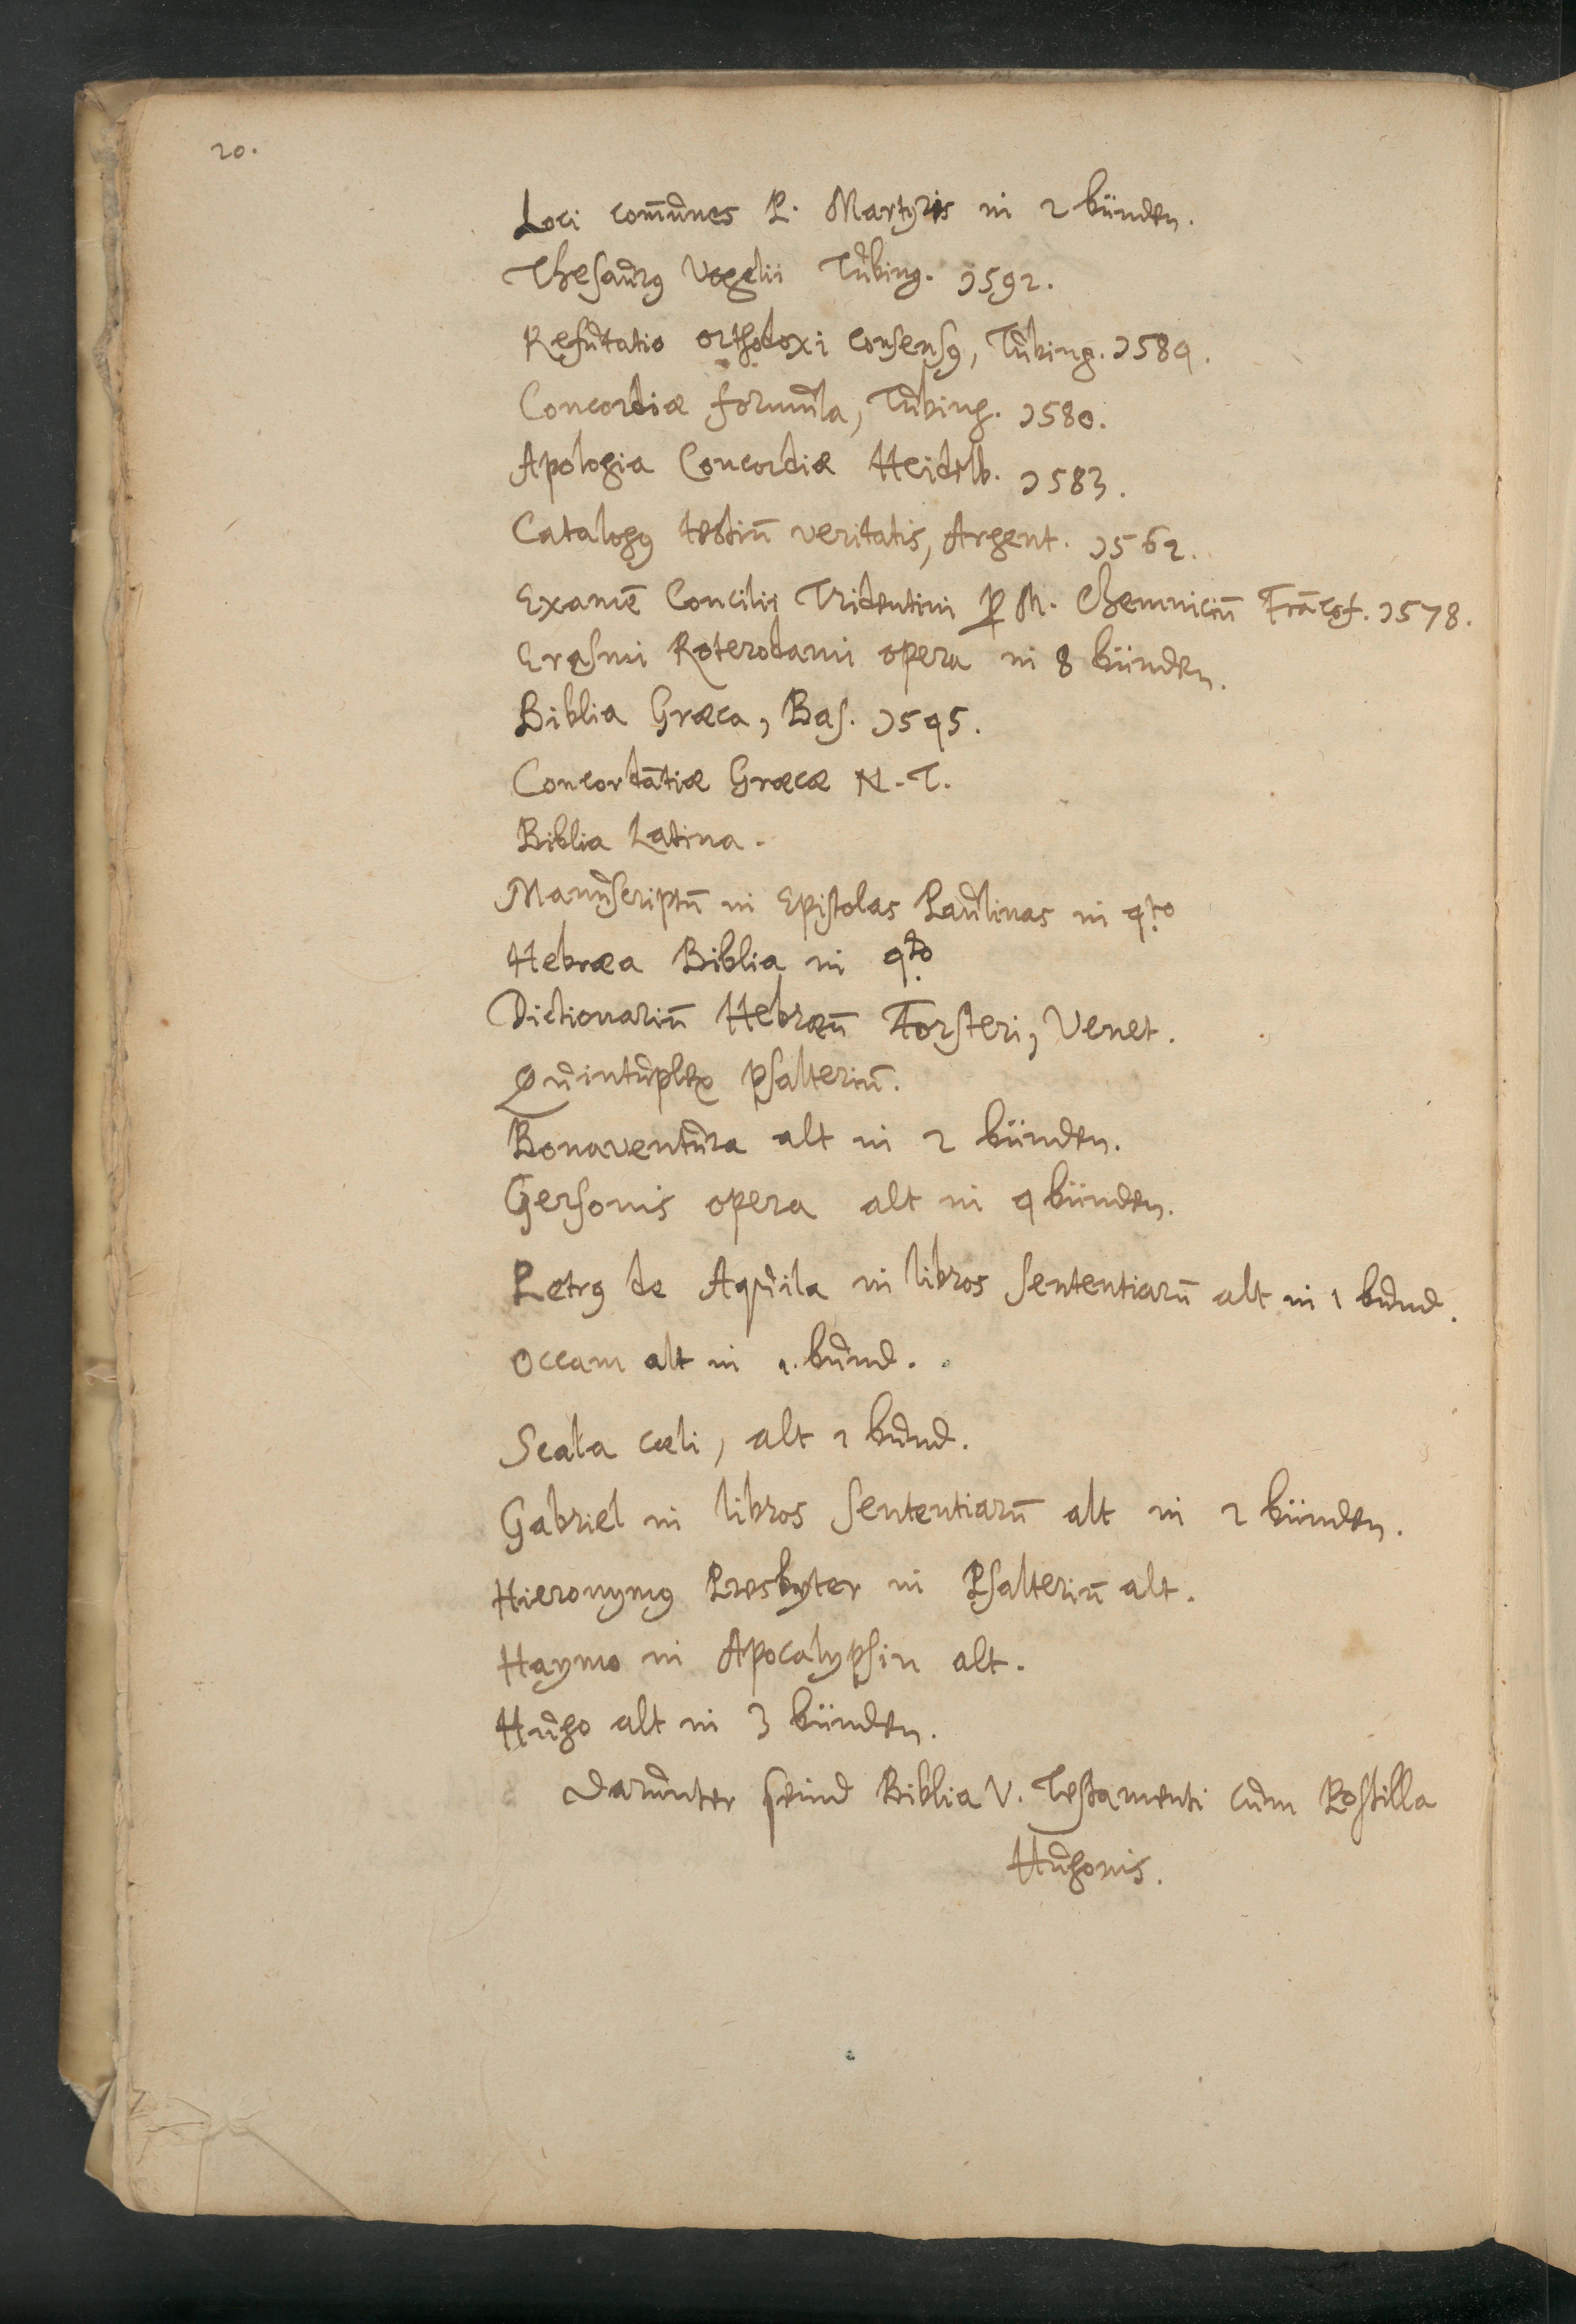 20.
Loci com̄unes P. Martyris in 2 bünden.
Thesaurꝰ Vogelii Tubing. 1592.
Refutatio orthodoxi consensꝰ, Tubing. 1584.
Concordiæ formula, Tubing. 1580.
Apologia Concordiæ Heidelb. 1583.
Catalogꝰ testiū veritatis, Argent. 1562.
Examē Concilii Tridentini ꝑ M. Chemniciū Frācof. 1578.
Erasmi Roterodami opera in 8 bünden.
Biblia Græca, Bas. 1545.
Concordātiæ Græcæ N. T.
Biblia Latina.
Manuscriptū in Epistolas Paulinas in 4to
Hebræa Biblia in 4to
Dictionariū Hebræū Forsteri, Venet.
Quintuplex psalteriū.
Bonaventura alt in 2 bünden.
Gersonis opera alt in 4 bünden.
Petrꝰ de Aquila in libros sententiarū alt in 1 bund.
Occam alt in 1. bund.
Scala cœli, alt 1 bund.
Gabriel in libros sententiarū alt in 2 bünden.
Hieronymꝰ Presbyter in Psalteriū alt.
Haymo in Apocalypsin alt.
Hugo alt in 3 bünden.
Darunter seind Biblia V. Testamenti cum Postilla
Hugonis.